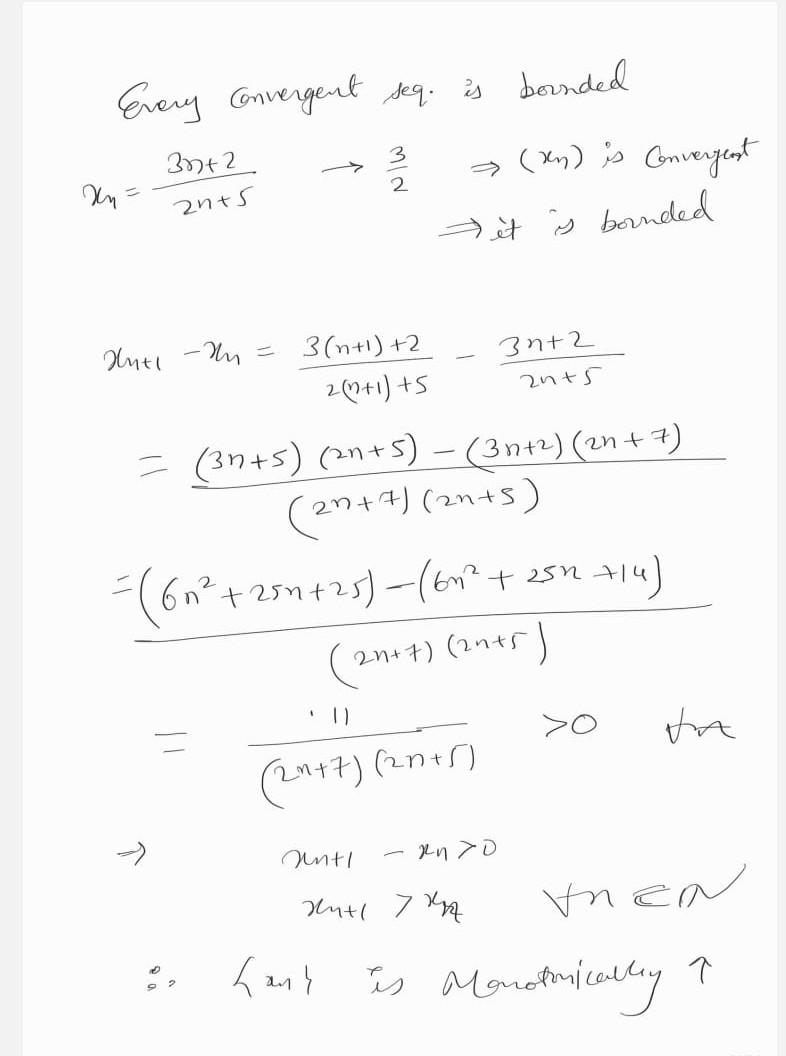 Every Convergent seq. is bounded
xn = 3n+2 / 2n+5 → 3/2 ⇒ (xn) is Convergent
⇒ it is bounded
xn+1 - xn = 3(n+1)+2 / 2(n+1)+5 - 3n+2 / 2n+5
= (3n+5) (2n+5) - (3n+2) (2n+7) / (2n+7) (2n+5)
= (6n²+25n+25) - (6n²+25n+14) / (2n+7) (2n+5)
= 11 / (2n+7) (2n+5) >0 ∀n
⇒ xn+1 - xn >0
xn+1 > xn ∀n ∈ N
∴ {xn} is Monotonically ↑